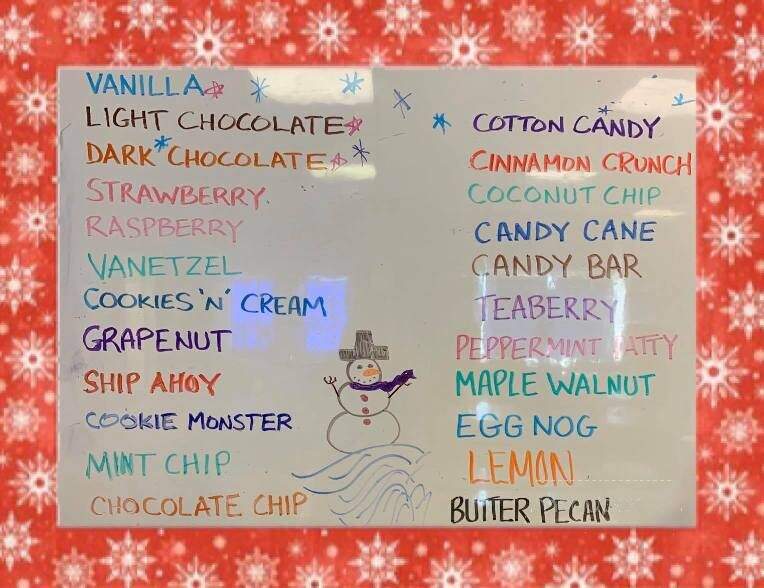 VANILLA
LIGHT CHOCOLATE
DARK CHOCOLATE
STRAWBERRY
RASPBERRY
VANETZEL
COOKIES 'N' CREAM
GRAPENUT
SHIP AHOY
COOKIE MONSTER
MINT CHIP
CHOCOLATE CHIP
COTTON CANDY
CINNAMON CRUNCH
COCONUT CHIP
CANDY CANE
CANDY BAR
TEABERRY
PEPPERMINT PATTY
MAPLE WALNUT
EGG NOG
LEMON
BUTTER PECAN